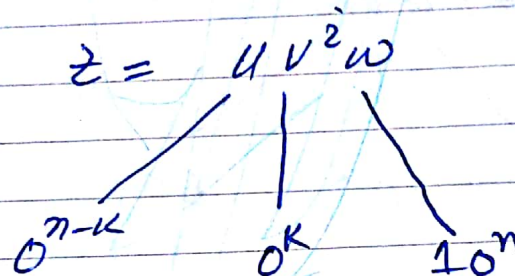 z = uv²w
0ⁿ⁻ᵏ 0ᵏ 10ⁿ